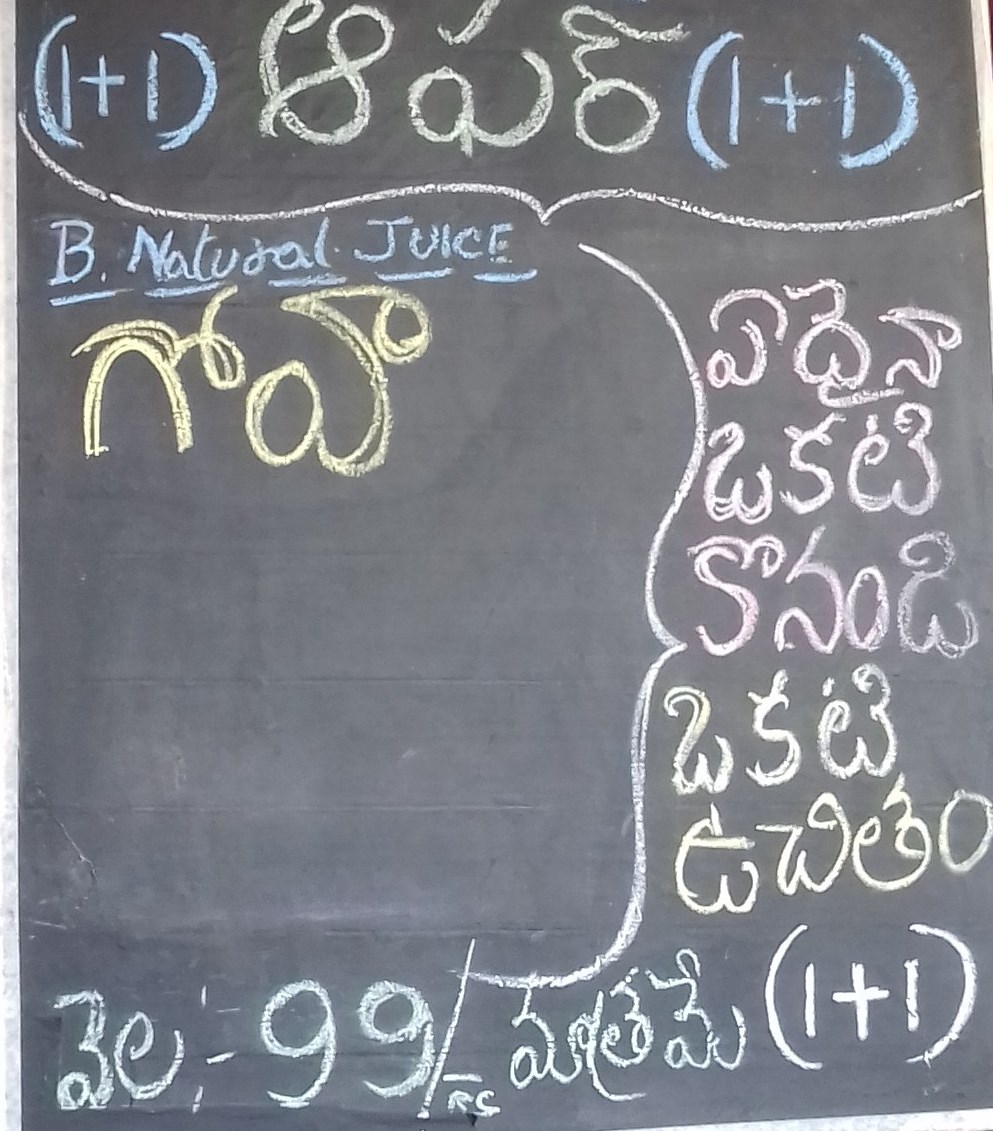 (1+1) ఆఫర్ (1+1)
B. Natural JUICE
గోవా
ఏదైనా
ఒకటి
కొనండి
ఒకటి
ఉచితం
వెల :- 99/- RS మాత్రమే (1+1)